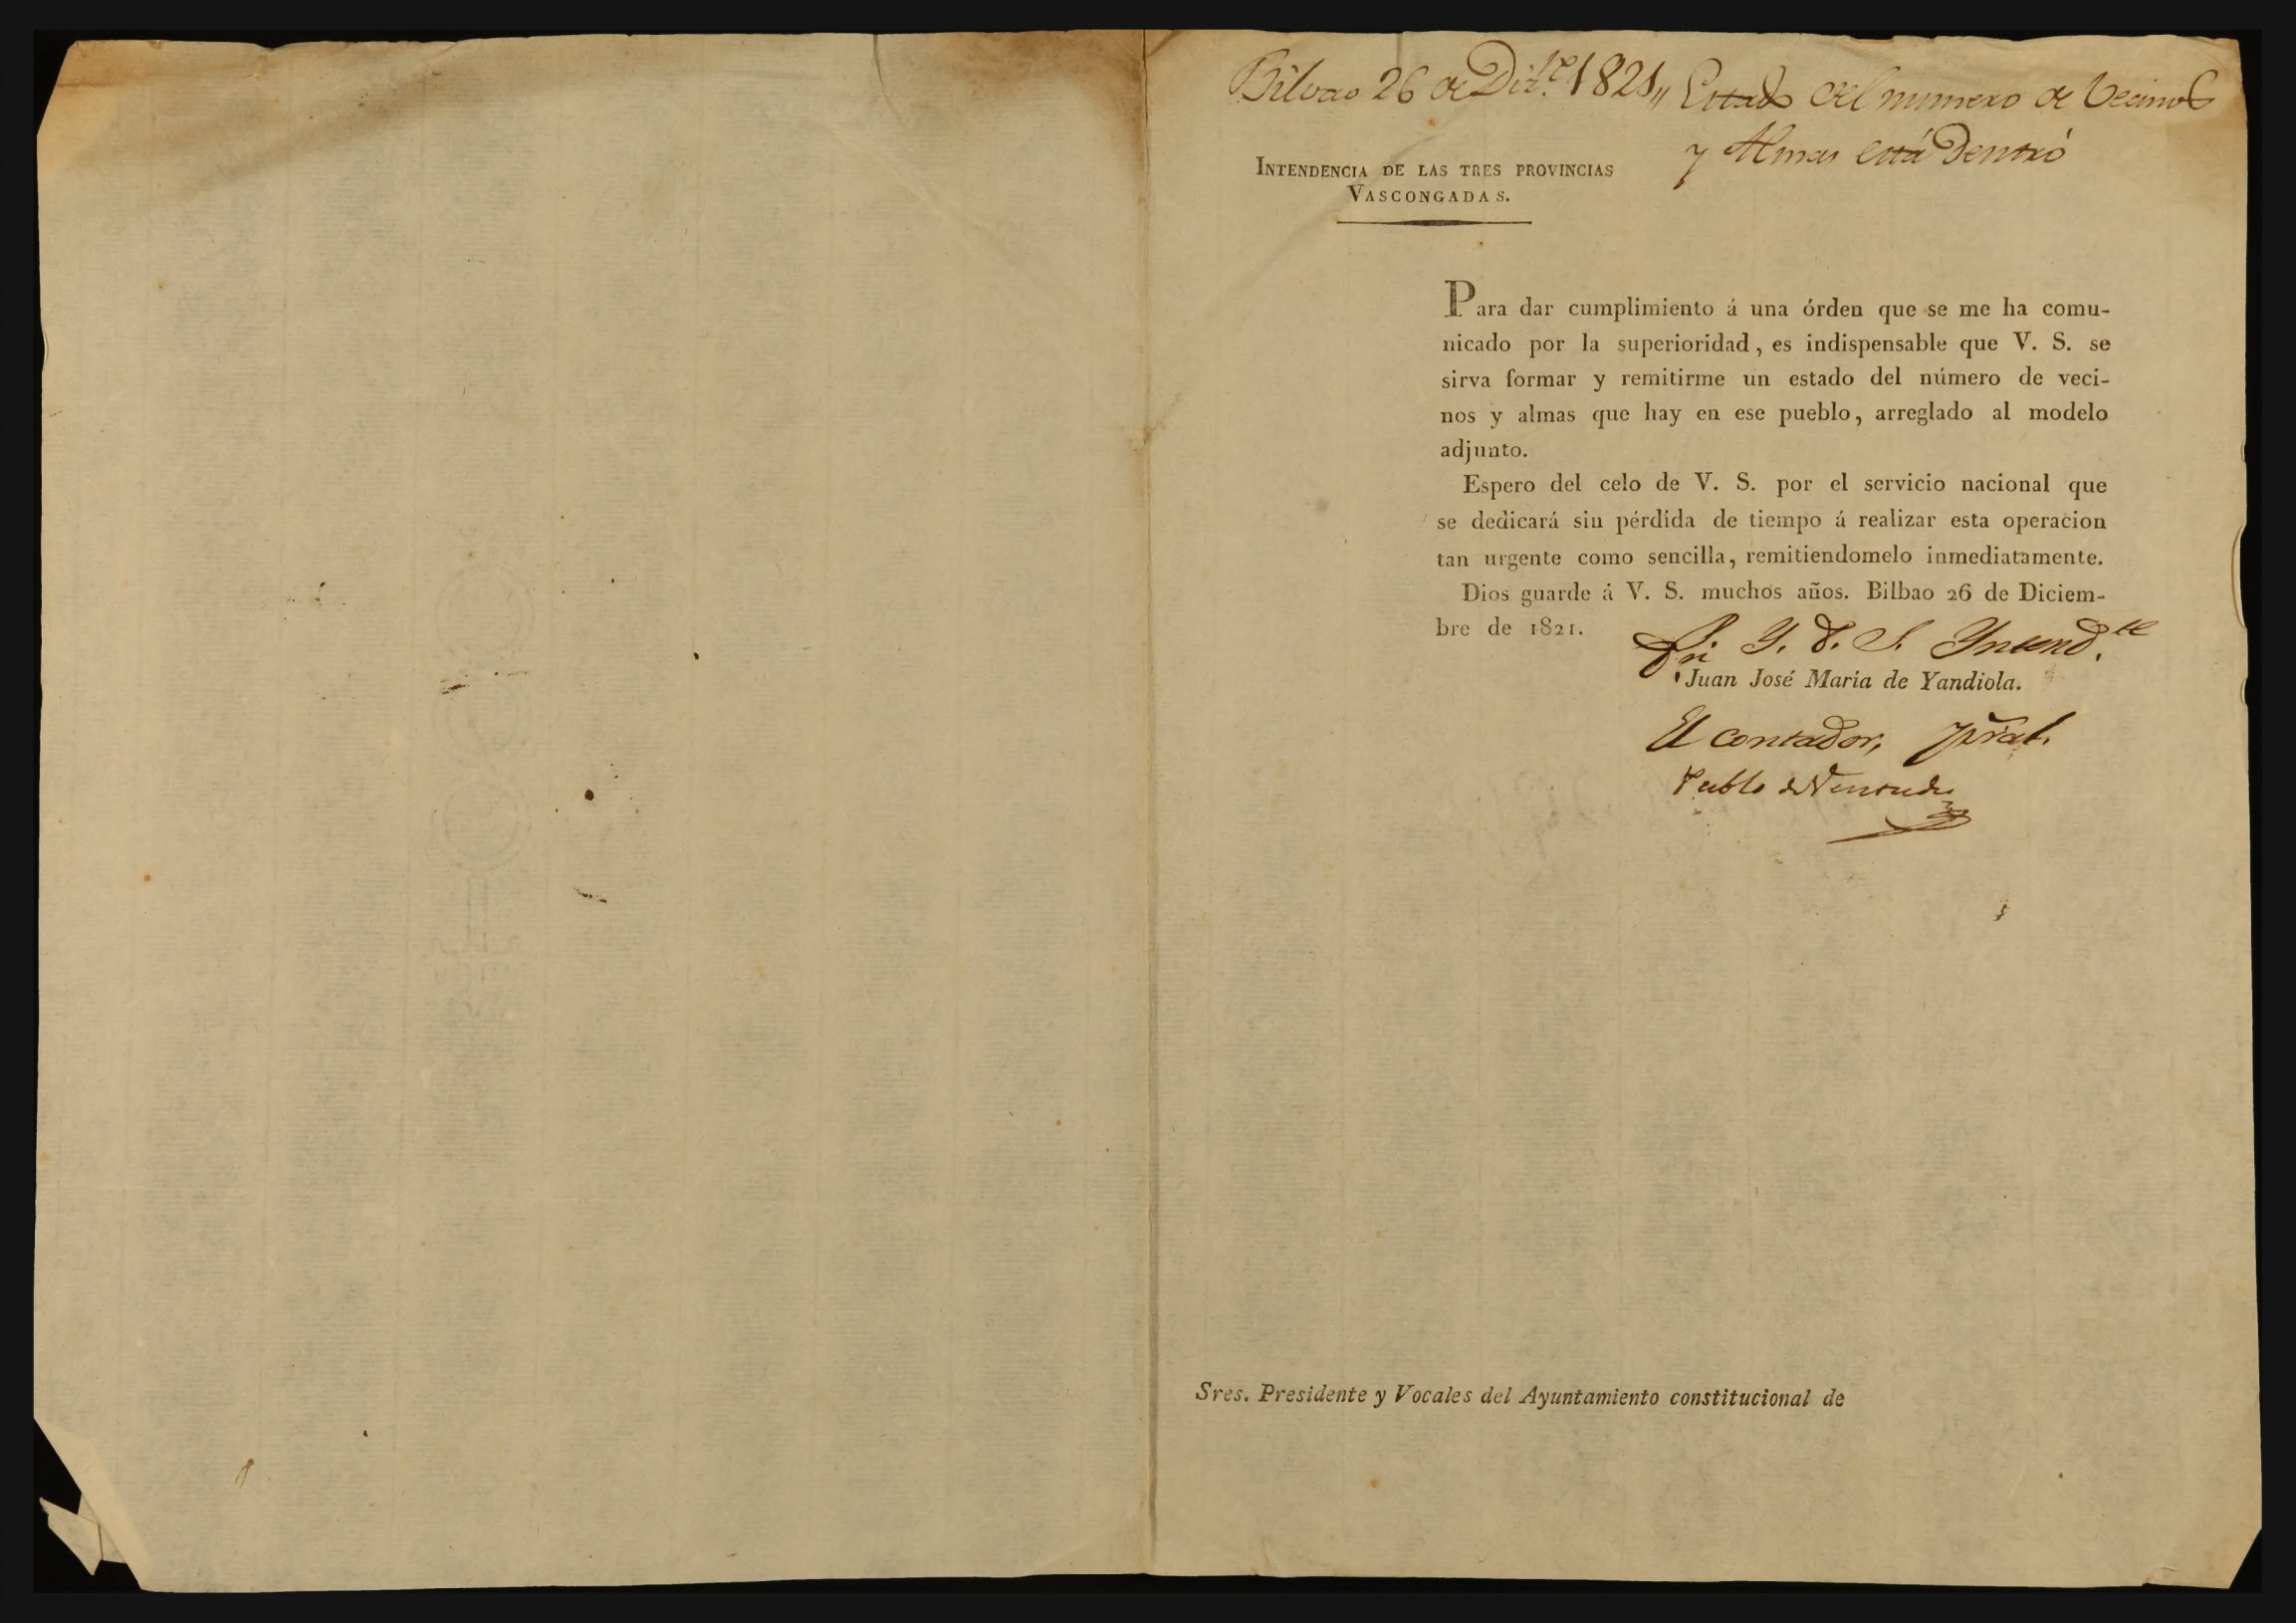 Bilvao 26 de Diz.re 1821,, Estado del numero de Vecinos
y Almas está Dentró
INTENDENCIA DE LAS TRES PROVINCIAS
VASCONGADAS.
Para dar cumplimiento á una órden que se me ha comu-
nicado por la superioridad, es indispensable que V. S. se
sirva formar y remitirme un estado del número de veci-
nos y almas que hay en ese pueblo, arreglado al modelo
adjunto.
Espero del celo de V. S. por el servicio nacional que
se dedicará sin pérdida de tiempo á realizar esta operacion
tan urgente como sencilla, remitiendomelo inmediatamente.
Dios guarde á V. S. muchos años. Bilbao 26 de Diciem-
bre de 1821.
Y. D. S. Yntend.te
Juan José María de Yandiola.
El contador,
Pablo de
Sres. Presidente y Vocales del Ayuntamiento constitucional de